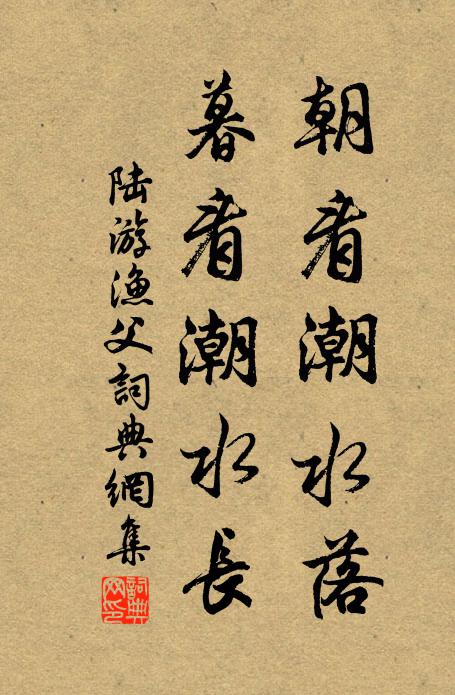 朝看潮水落
暮看潮水長
陆游漁父詞典網集
詞典網印